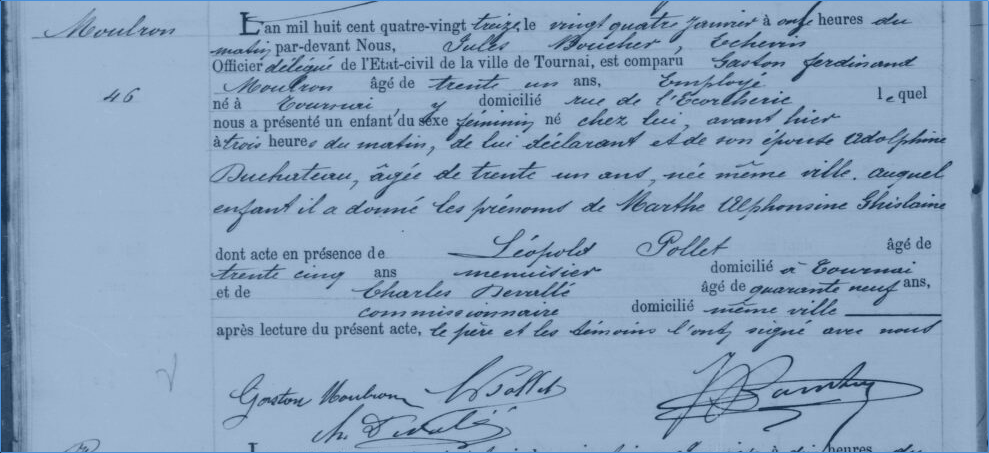 Moulron
46
L'an mil huit cent quatre-vingt treize, le vingt quatre Janvier à onze heures du
matin, par-devant Nous, Jules Boucher, Echevin
Officier délégué de l'Etat-civil de la ville de Tournai, est comparu Gaston ferdinand
Moulron âgé de trente un ans, Employé
né à Tournai, y domicilié rue de l'Ecorcherie lequel
nous a présenté un enfant du sexe féminin né chez lui, avant hier
à trois heures du matin, de lui déclarant et de son épouse Adolphine
Duchateau, âgée de trente un ans, née même ville. auquel
enfant il a donné les prénoms de Marthe Alphonsine Ghislaine
dont acte en présence de Léopold Pollet âgé de
trente cinq ans menuisier domicilié à Tournai
et de Charles Devallé âgé de quarante neuf ans,
commissionnaire domicilié même ville
après lecture du présent acte, le père et les témoins l'ont signé avec nous
Gaston Moulron Pollet
Ch. Devallé
L heures du